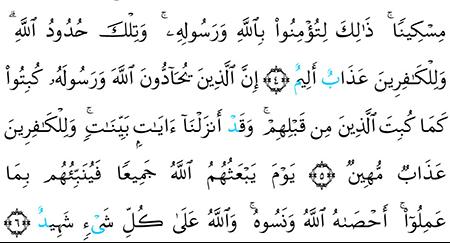 مِسْكِينًا ۚ ذَٰلِكَ لِتُؤْمِنُوا۟ بِٱللَّهِ وَرَسُولِهِۦ ۚ وَتِلْكَ حُدُودُ ٱللَّهِ ۗ
وَلِلْكَـٰفِرِينَ عَذَابٌ أَلِيمٌ ﴿٤﴾ إِنَّ ٱلَّذِينَ يُحَآدُّونَ ٱللَّهَ وَرَسُولَهُۥ كُبِتُوا۟
كَمَا كُبِتَ ٱلَّذِينَ مِن قَبْلِهِمْ ۚ وَقَدْ أَنزَلْنَآ ءَايَـٰتٍۭ بَيِّنَـٰتٍ ۚ وَلِلْكَـٰفِرِينَ
عَذَابٌ مُّهِينٌ ﴿٥﴾ يَوْمَ يَبْعَثُهُمُ ٱللَّهُ جَمِيعًا فَيُنَبِّئُهُم بِمَا
عَمِلُوٓا۟ ۚ أَحْصَىٰهُ ٱللَّهُ وَنَسُوهُ ۚ وَٱللَّهُ عَلَىٰ كُلِّ شَىْءٍ شَهِيدٌ ﴿٦﴾